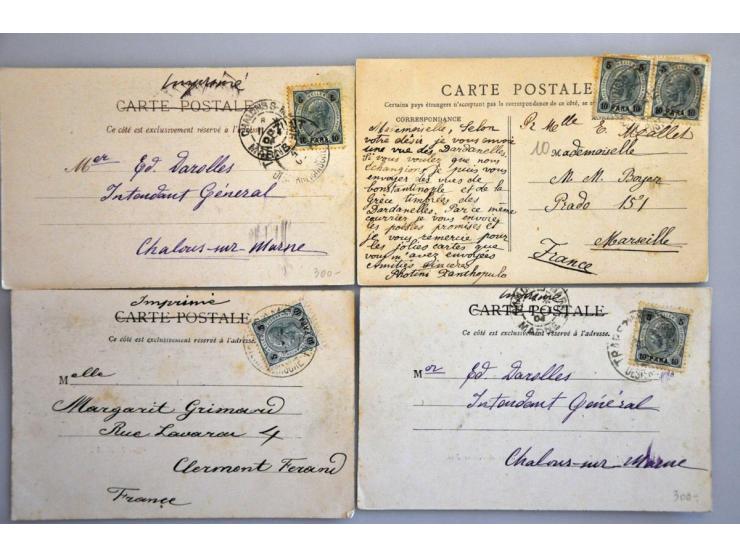 Imprimé
CARTE POSTALE
Ce côté est exclusivement réservé à l'adresse.
5 5
10 PARA 10
Mer Ed. Darolles
Intendant Général
Chalous-sur-Marne
300-
CARTE POSTALE
Certains pays étrangers n'acceptant pas la correspondance de ce côté, se
CORRESPONDANCE
Maremoiselle, Selon
votre désir je vous envoie
une vue des Dardanelles.
Si vous voulez que nous
échangions, je puis vous
envoyer des vues de
Constantinople et de la
Grèce timbrées des
Dardanelles. Par ce même
courrier je vous envoie
les postes promises et
je vous remercie pour
les jolies cartes que
vous m'avez envoyées
Amitiés sincères
Photini Xanthopulo
5 5
10 PARA 10
5 5
10 PARA 10
Pr Melle E. Meallet
10
Mademoiselle
M. M. Boyer
Prado 151
Marseille
France
Imprimé
CARTE POSTALE
Ce côté est exclusivement réservé à l'adresse.
Melle
Margarit Grimard
Rue Lavarau 4
Clermont Ferand
France
Imprimé
CARTE POSTALE
Ce côté est exclusivement réservé à l'adresse.
5 5
10 PARA 10
Mor Ed. Darolles
Intendant Général
Chalous-sur-Marne
300-